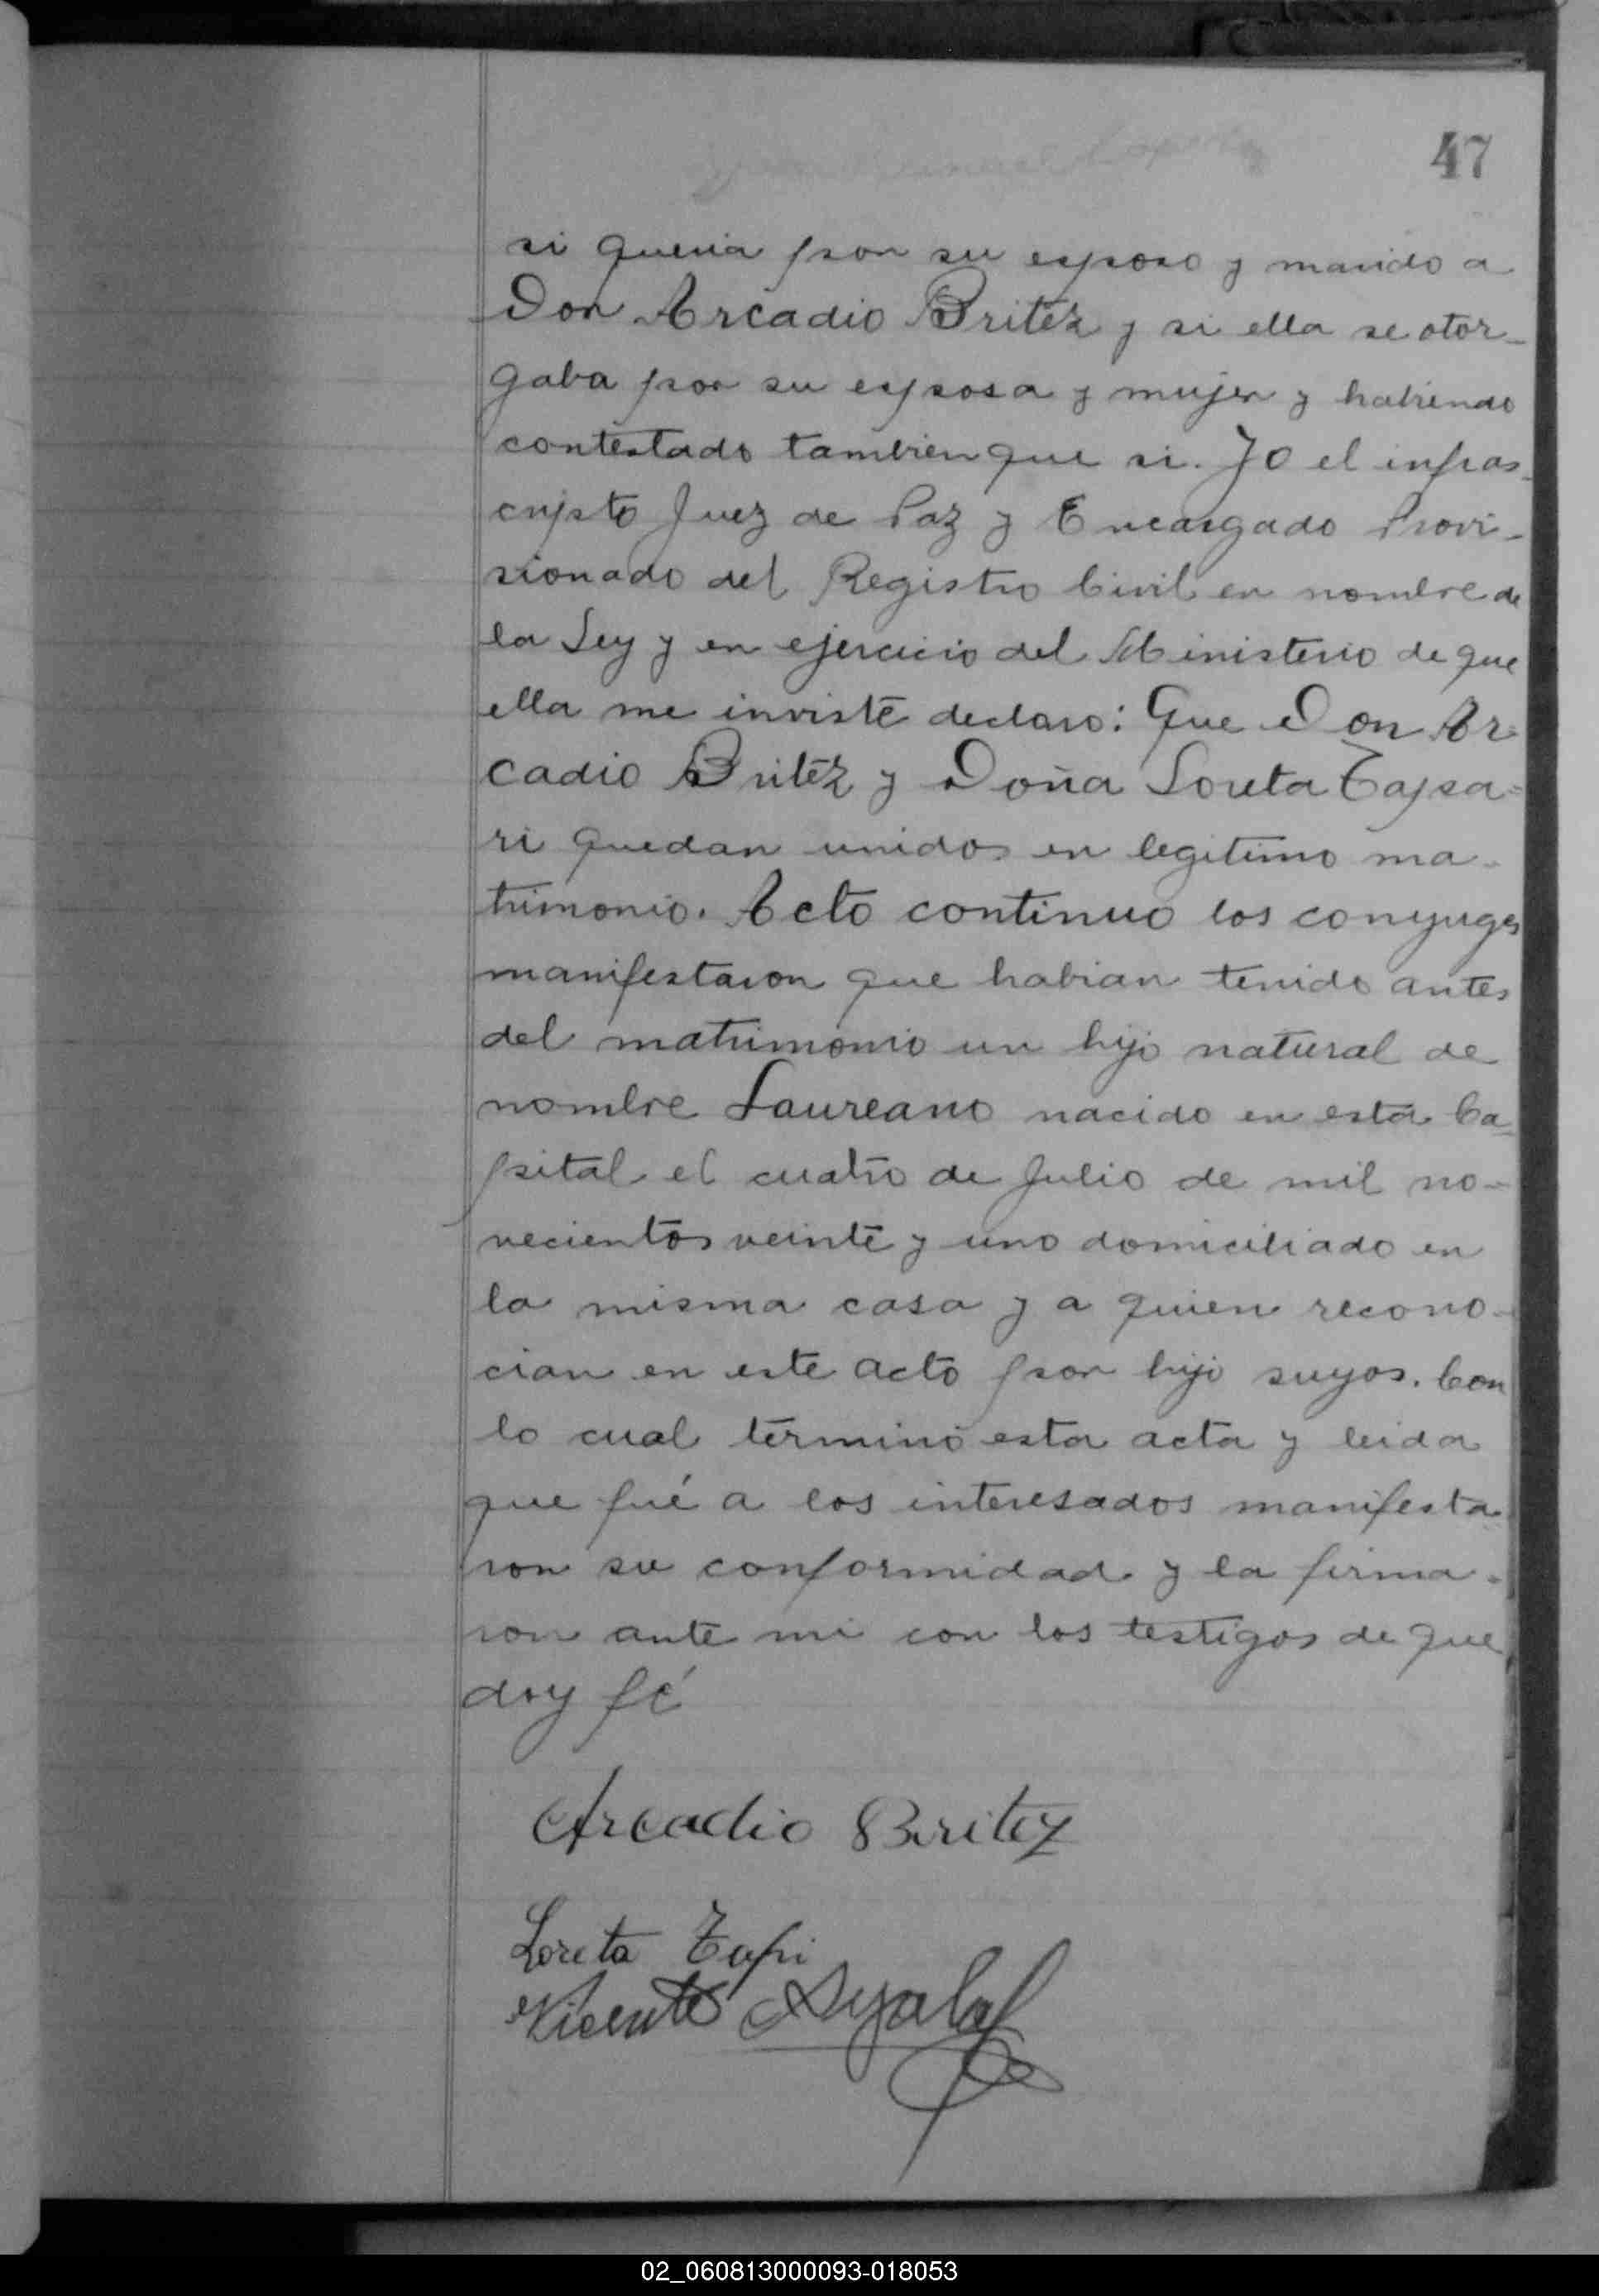 47
si queria por su esposo y marido a
Don Arcadio Britez y si ella se otor-
gaba por su esposa y mujer y habiendo
contestado tambien que si. Yo el infras-
cripto Juez de Paz y Encargado Provi-
sionado del Registro Civil en nombre de
la Ley y en ejercicio del Ministerio de que
ella me inviste declaro: Que Don Ar=
cadio Britez y Doña Loreta Tapa=
ri quedan unidos en legitimo ma-
trimonio. Acto continuo los conyuges
manifestaron que habian tenido antes
del matrimonio un hijo natural de
nombre Laureano nacido en esta Ca=
pital el cuatro de Julio de mil no-
vecientos veinte y uno domiciliado en
la misma casa y a quien recono-
cian en este acto por hijo suyos. Con
lo cual terminó esta acta y leida
que fué a los interesados manifesta=
ron su conformidad y la firma-
ron ante mi con los testigos de que
doy fé
Arcadio Britez
Loreta Tapi
Vicente Ayala
02_060813000093-018053